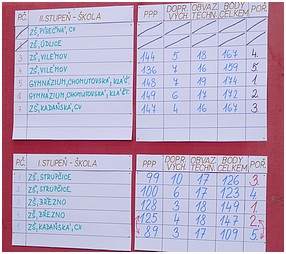 P.Č. II. STUPEŇ - ŠKOLA PPP DOPR. VÝCH. OBVAZ. TECHN. BODY CELKEM POŘ.
ZŠ, PÍSEČNÁ, CV
ZŠ, ÚDLICE
3 ZŠ, VILÉMOV 144 5 18 167 4.
4 ZŠ, VILÉMOV 136 7 16 159 5.
5 GYMNÁZIUM, CHOMUTOVSKÁ, KLÁŠT. 148 7 19 174 1.
6 GYMNÁZIUM, CHOMUTOVSKÁ, KLÁŠT. 149 6 17 172 2.
7 ZŠ, KADAŇSKÁ, CV 147 4 16 167 3
P.Č. I. STUPEŇ - ŠKOLA PPP DOPR. VÝCH. OBVAZ. TECHN. BODY CELKEM POŘ.
ZŠ, STRUPČICE 99 10 17 126 3.
ZŠ, STRUPČICE 100 6 17 123 4
ZŠ, BŘEZNO 128 3 18 149 1.
ZŠ, BŘEZNO 125 4 18 147 2.
ZŠ, KADAŇSKÁ, CV 89 3 17 109 5.